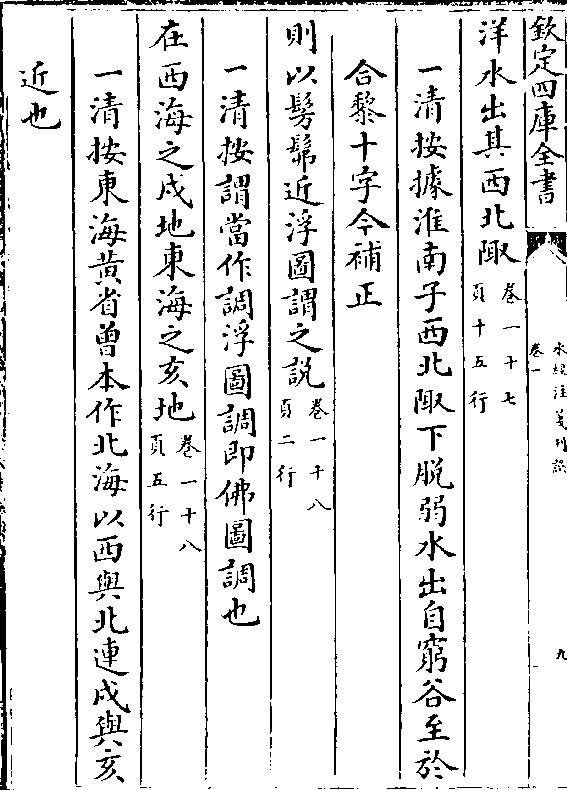 欽定四庫全書
水經注箋刋誤
卷一
九
洋水出其西北陬
卷一十七
頁十五行
一清按據淮南子西北陬下脱弱水出自窮谷至於
合黎十字今補正
則以髣髴近浮圖謂之説
卷一十八
頁二行
一清按謂當作調浮圖調即佛圖調也
在西海之戌地東海之亥地
卷一十八
頁五行
一清按東海黄省曽本作北海以西與北連戌與亥
近也